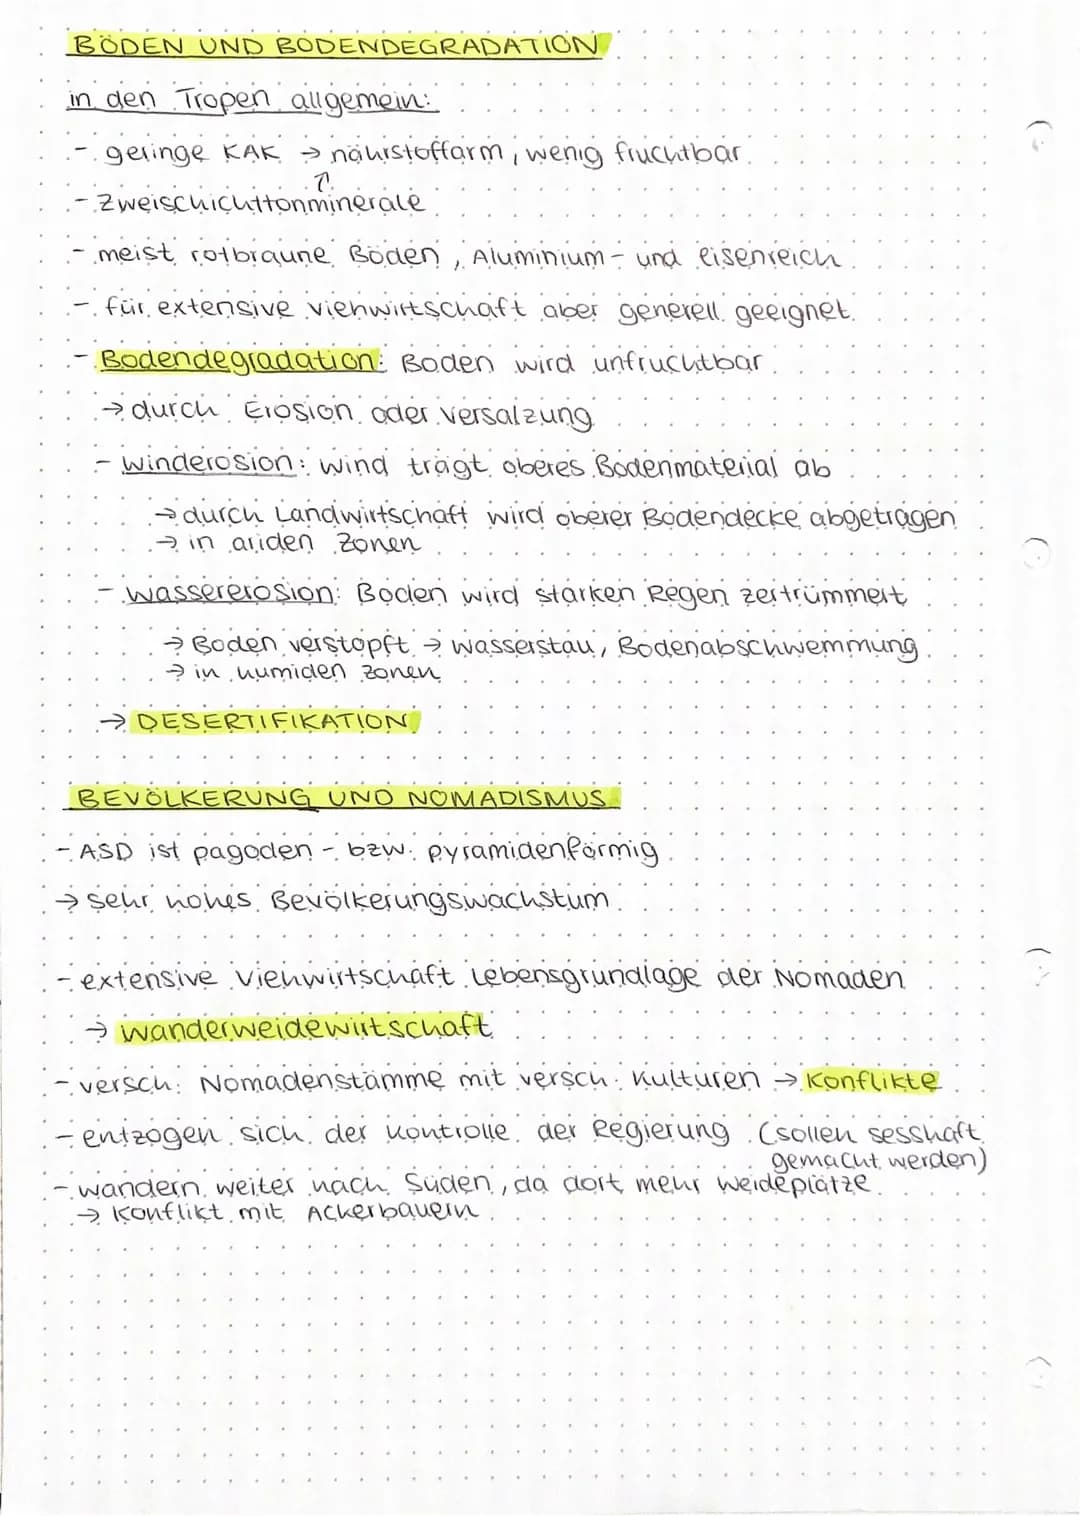 BÖDEN UND BODENDEGRADATION
in den Tropen allgemein:
- geringe KAK → nährstoffarm, wenig fruchtbar
↑
- Zweischichttonminerale
- meist rotbraune Böden, Aluminium- und eisenreich
- für extensive viehwirtschaft aber generell geeignet
- Bodendegradation: Boden wird unfruchtbar
→ durch Erosion oder versalzung
- winderosion: wind trägt oberes Bodenmaterial ab
→ durch Landwirtschaft wird oberer Bodendecke abgetragen
→ in ariden Zonen
- wassererosion: Boden wird starken Regen zertrümmert
→ Boden verstopft → wasserstau, Bodenabschwemmung
→ in humiden zonen
→ DESERTIFIKATION
BEVÖLKERUNG UND NOMADISMUS
- ASD ist pagoden- bzw. pyramidenförmig
→ sehr hohes Bevölkerungswachstum
- extensive Viehwirtschaft Lebensgrundlage der Nomaden
→ wanderweidewirtschaft
- versch. Nomadenstämme mit versch. Kulturen → Konflikte
- entzogen sich der Kontrolle der Regierung (sollen sesshaft
gemacht werden)
- wandern weiter nach Süden, da dort mehr weideplätze
→ Konflikt mit Ackerbauern